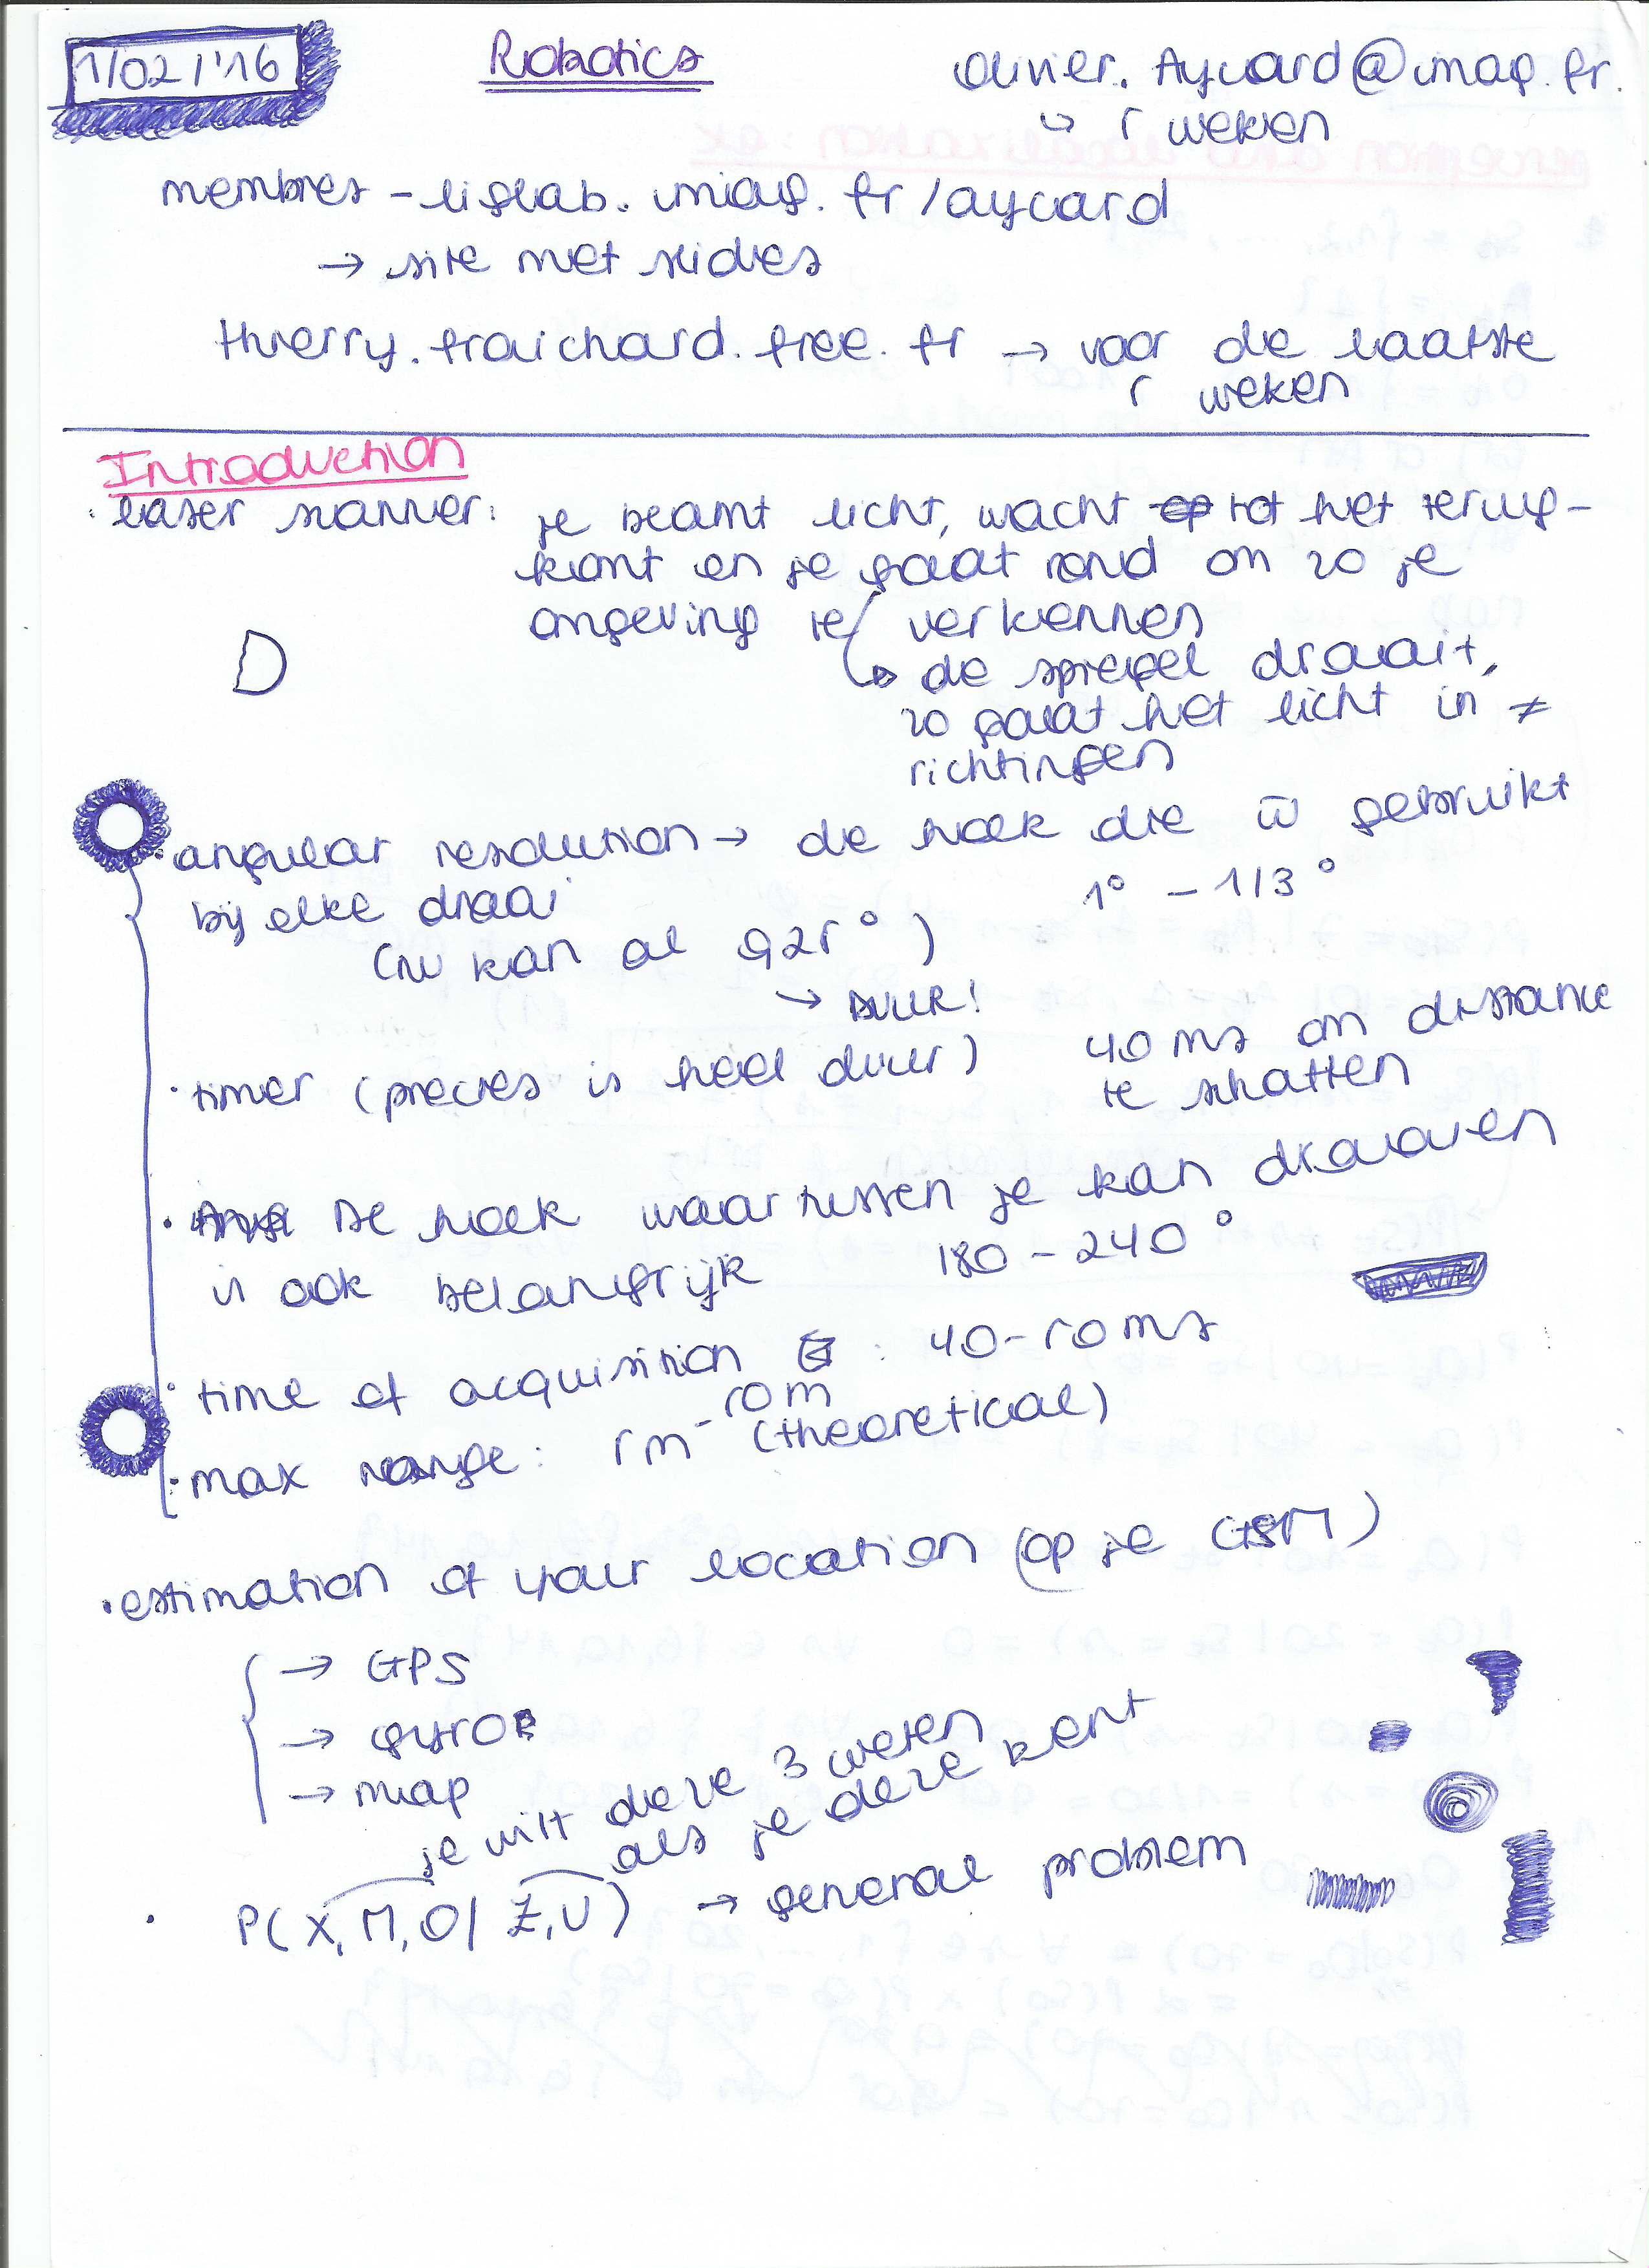 1/02/'16
Robotics
Olivier.Aycard@imag.fr.
↳ 5 weken
membres-liglab.imag.fr/aycard
→ site met slides
thierry.fraichard.free.fr → voor de laatste
5 weken
Introduction
· laser scanner: je beamt licht, wacht op tot het terug-
komt en je gaat rond om zo je
omgeving te verkennen
↳ de spiegel draait,
zo gaat het licht in ≠
richtingen
D
· angular resolution → de hoek die w̄ gebruikt
bij elke draai 1° - 1/3°
(nu kan al 0,25°)
→ DUUR!
· timer (precies is heel duur) 40 ms om distance
te schatten
· De hoek waartussen je kan draaien
is ook belangrijk 180 - 240°
· time of acquisition : 40-50 ms
· max range: 5m - 50m (theoretical)
· estimation of your location (op je GSM)
→ GPS
→ gyro
→ map
je wilt deze 3 weten
als je deze kent
· P(X, M, O | Z, U) → general problem